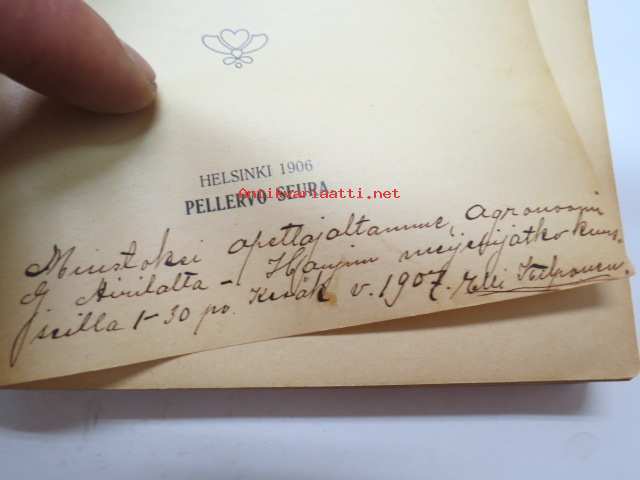 HELSINKI 1906
PELLERVO-SEURA
Antikvariaatti.net
Muistoksi opettajaltamme, agronoomi
Hirilalta - Haapion meijerijatko kurs-
seilla 1-30 po. Kesäk v. 1907. Helli